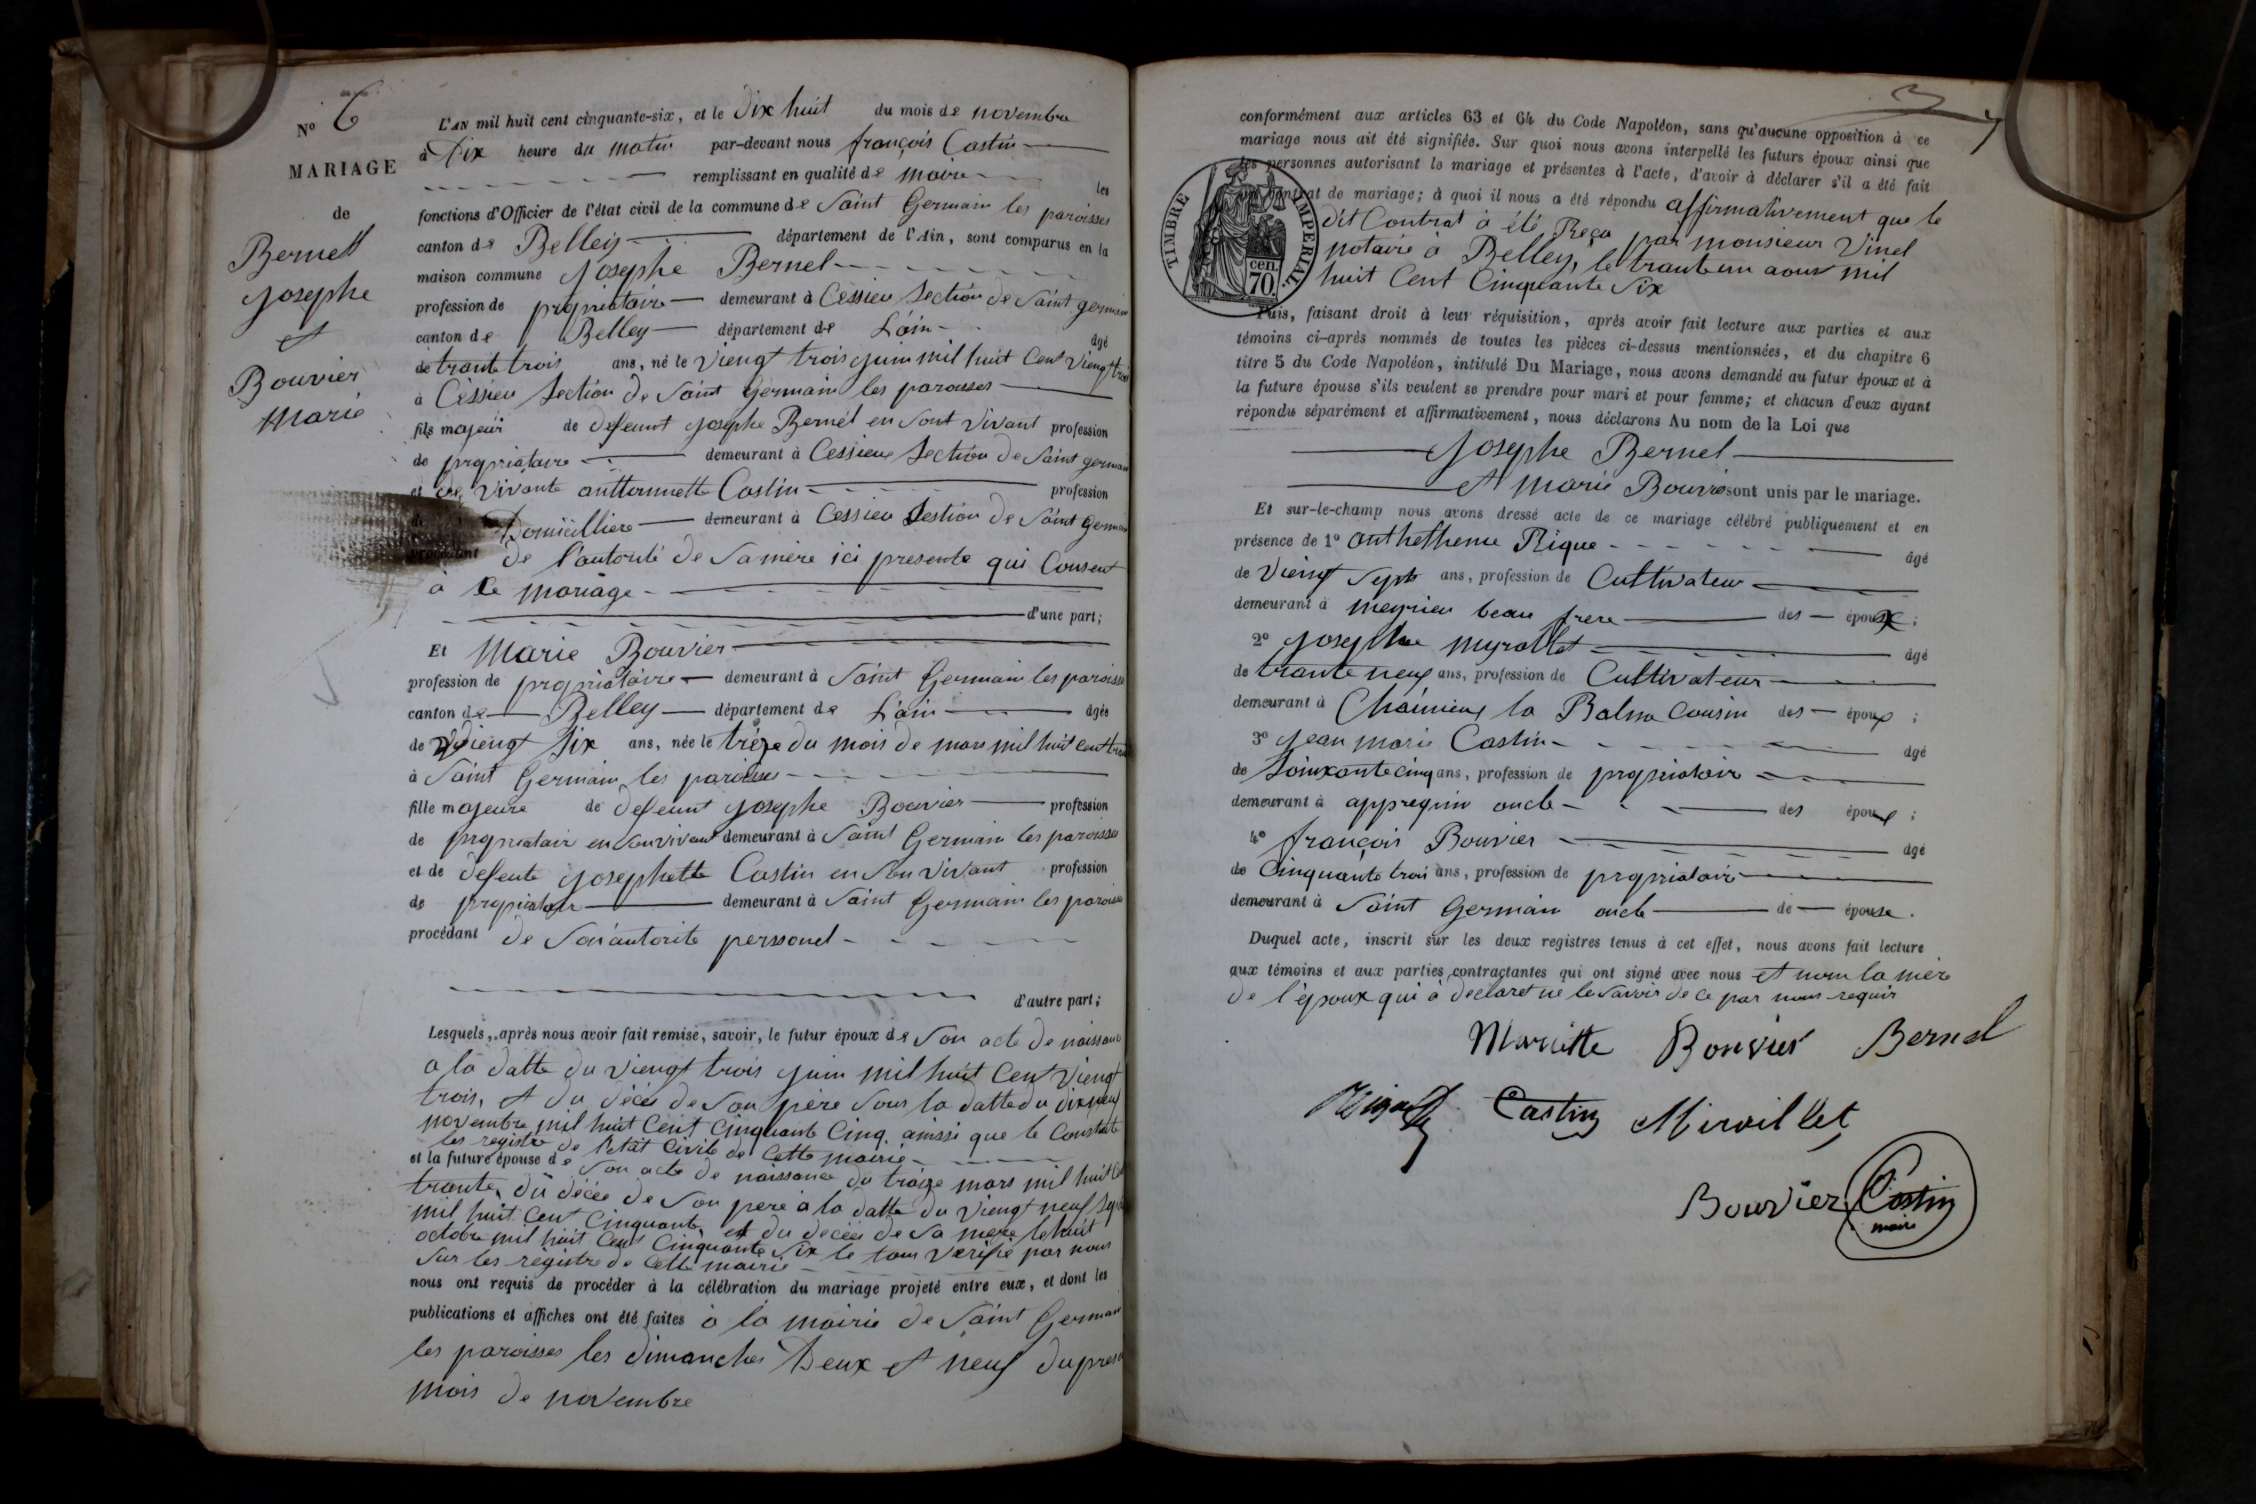 N° 6
MARIAGE
de
Bernell
Josephe
et
Bouvier
Marie
L'AN mil huit cent cinquante-six, et le dix huit du mois de novembre
à Dix heure du matin par-devant nous françois Castin
remplissant en qualité de maire les
fonctions d'Officier de l'état civil de la commune de Saint Germain les paroisses
canton de Belley département de l'Ain, sont comparus en la
maison commune Josephe Bernel
profession de propriataire demeurant à Cessieu Section de Saint germain
canton de Belley département de L'ain âgé
de trante trois ans, né le viengt trois juin mil huit Cent viengt trois
à Cessieu Section de Saint Germain les paroisses
fils majeur de defeunt josephe Bernel en sont vivant profession
de propriataire demeurant à Cessieu Section de Saint germain
et de vivante anttonnette Castin profession
Domicilliere demeurant à Cessieu Sestion de Saint Germain
procédant de l'autorité de Sa mère ici presente qui Consent
à Ce mariage
d'une part;
Et Marie Bouvier
profession de propriataire demeurant à Saint Germain les paroisses
canton de Belley département de L'ain âgée
de viengt Six ans, née le trèze du mois de mars mil huit cent trante
à Saint Germain les paroisses
fille majeure de defeunt Josephe Bouvier profession
de propriatair en Son vivant demeurant à Saint Germain les paroisses
et de defente josephette Castin en Son vivant profession
de propriatair demeurant à Saint Germain les paroisses
procédant de Son autorité personel
d'autre part;
Lesquels, après nous avoir fait remise, savoir, le futur époux de Son acte de naissance
a la datte du viengt trois juin mil huit Cent viengt
trois, et du décés de Son père Sous la datte du dixneuf
novembre mil huit Cent Cinquante Cinq. ainssi que le Constate
les registre de l'etat Civile de Cette mairie
et la future épouse de Son acte de naissance du trèize mars mil huit Cent
trante, du décée de Son pere à la datte du viengt neuf Sept
mil huit Cent Cinquante, et du décée de Sa mere le huit
octobre mil huit Cent Cinquante Six le tous verifie par nous
Sur les registre de Cette mairie
nous ont requis de procéder à la célébration du mariage projeté entre eux, et dont les
publications et affiches ont été faites à la mairie de Saint Germain
les paroisses les dimanches Deux et neuf du present
mois de novembre
conformément aux articles 63 et 64 du Code Napoléon, sans qu'aucune opposition à ce
mariage nous ait été signifiée. Sur quoi nous avons interpellé les futurs époux ainsi que
les personnes autorisant le mariage et présentes à l'acte, d'avoir à déclarer s'il a été fait
un contrat de mariage; à quoi il nous a été répondu affirmativement que le
dit Contrat à été Reçu par monsieur Vinel
notaire à Belley, le trante un aout mil
huit Cent Cinquante Six
TIMBRE IMPERIAL.
cen.
70.
Puis, faisant droit à leur réquisition, après avoir fait lecture aux parties et aux
témoins ci-après nommés de toutes les pièces ci-dessus mentionnées, et du chapitre 6
titre 5 du Code Napoléon, intitulé Du Mariage, nous avons demandé au futur époux et à
la future épouse s'ils veulent se prendre pour mari et pour femme; et chacun d'eux ayant
répondu séparément et affirmativement, nous déclarons Au nom de la Loi que
Josephe Bernel
et marie Bouvie sont unis par le mariage.
Et sur-le-champ nous avons dressé acte de ce mariage célébré publiquement et en
présence de 1° anthetheme Rique âgé
de Viengt Sept ans, profession de Cultivateur
demeurant à meyrieu beau frere des époux;
2° Josephe myrallet âgé
de trante neuf ans, profession de Cultivateur
demeurant à Cháimieux la Balme Cousin des époux;
3° Jean marie Castin âgé
de Soixante cinq ans, profession de propriatair
demeurant à appregnin oncle des époux;
4° françois Bouvier âgé
de Cinquante trois ans, profession de propriatair
demeurant à Saint Germain oncle de épouse.
Duquel acte, inscrit sur les deux registres tenus à cet effet, nous avons fait lecture
aux témoins et aux parties contractantes qui ont signé avec nous et nom la mère
de l'époux qui à declaret ne le Savoir de ce par nous requir
Mariette Bouvier Bernel
Castin Miroillet
Bouvier Castin
maire